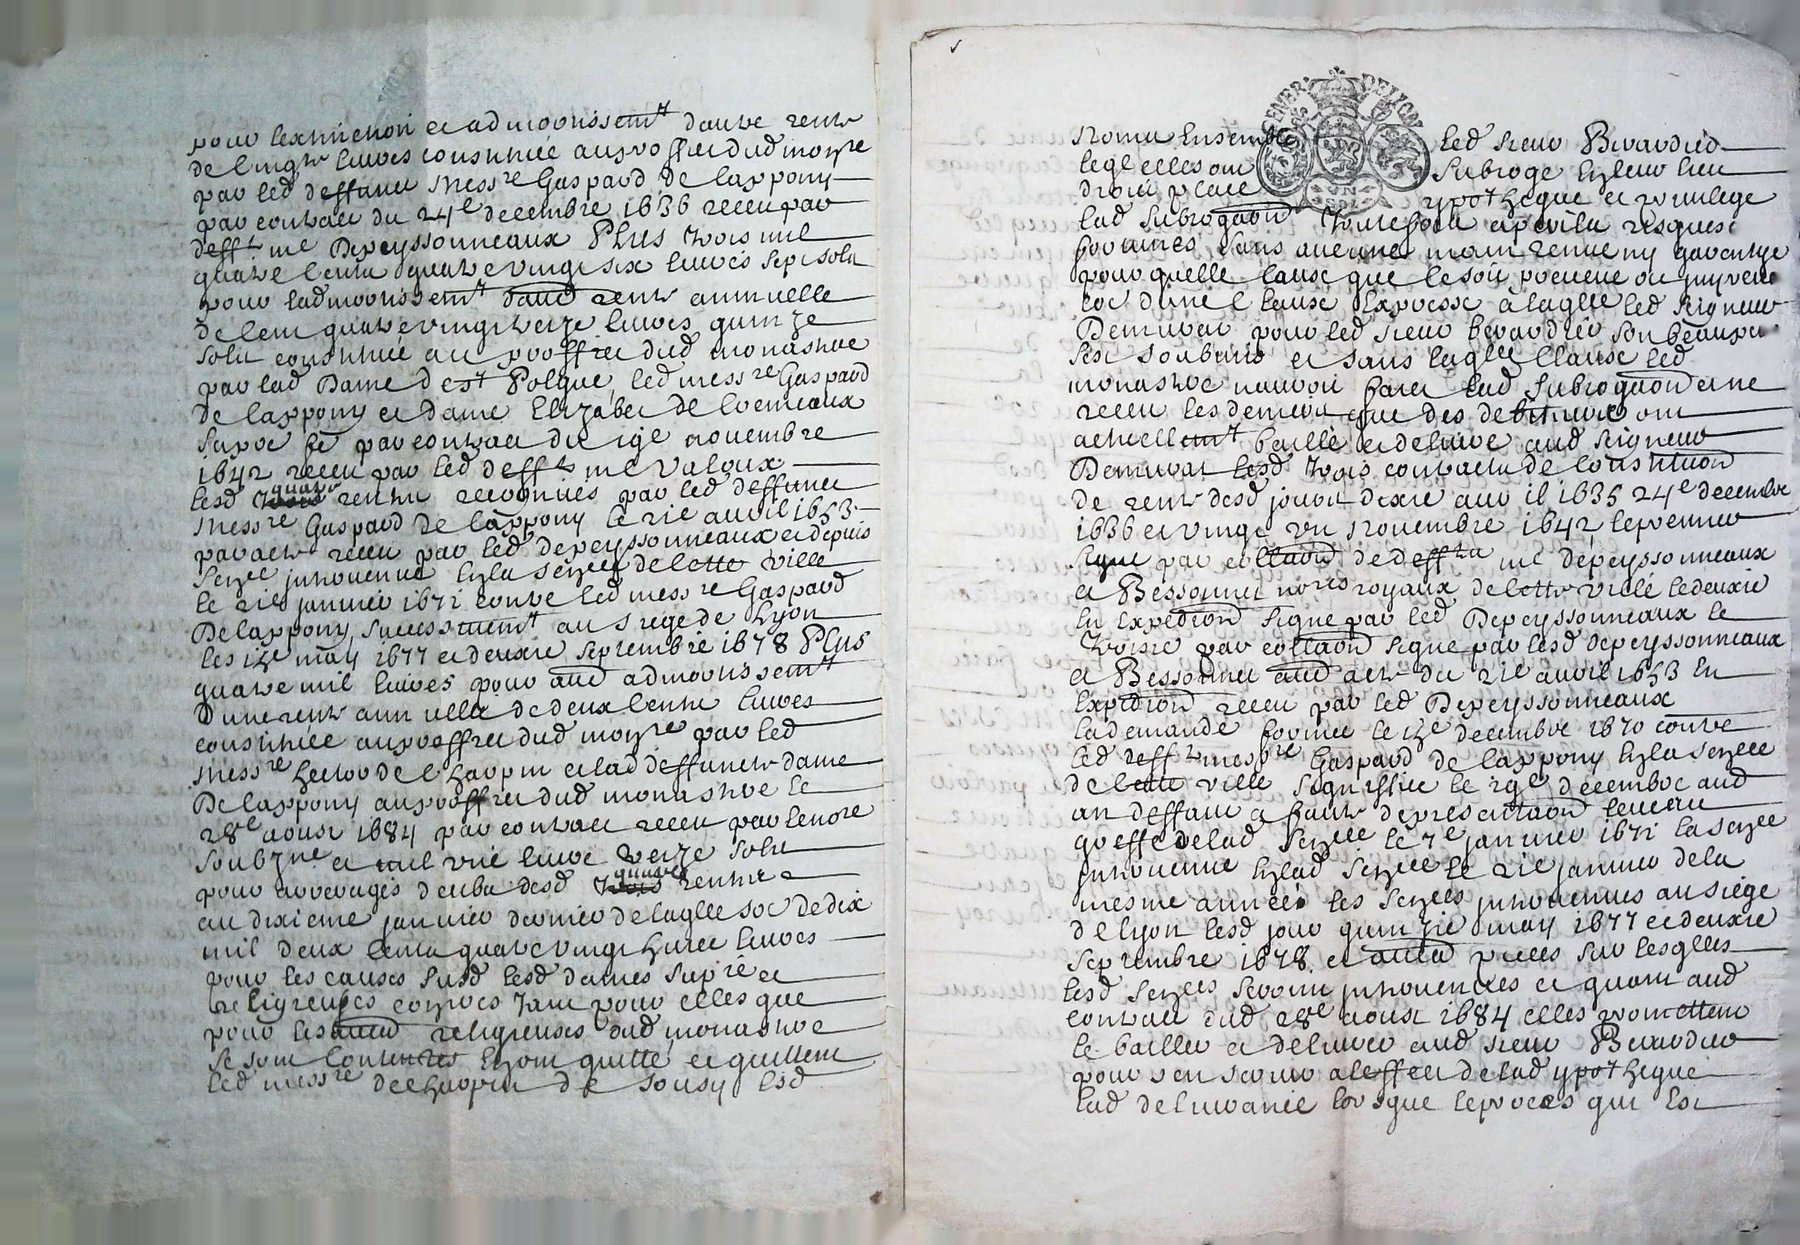 pour lextinction et admortissemt dautre rente
de vingt livres constituée au proffit dud monre
par led deffunt Messre Gaspard de lappony
par contract du 24e decembre 1636 receu par
defft me Depeyssonneaux PLUS trois mil
quatre cents quatre vingt six livres sept solz
pour ladmortissemt daud rente annuelle
de cent quatre vingt treize livres quinze
solz constituée au proffit dud monastere
par lad Dame dest Polgue, led messre Gaspard
de lappony et dame Elizabet de
par contract du novembre
1642 receu par led defft me Valoux
lesd quatre rentes reconnues par led deffunt
Messre Gaspard de lappony le xie avril 1653
par acte receu par led depeyssonneaux et depuis
sence intervenue en la sencee de cette ville
le xie janvier 1671 contre led messre Gaspard
De lappony, successivemt au siege de Lyon
les may 1677 et deuxie septembre 1678 PLUS
quatre mil livres pour aud admortissemt
dune rente annuelle de deux cents livres
constituée au proffit dud monre par led
Messre hector de Charpin et lad deffuncte dame
De lappony au proffit dud monastere le
28e aoust 1684 par contract receu par le nore
soubzne et mil une livre treize solz
pour arrerages deubz desd quatre rentes
au dixieme janvier dernier de laqlle soe de dix
mil deux cents quatre vingt huict livres
pour les causes susd lesd dames supre et
religieuses tant pour elles que
pour les religieuses dud monastere
se sont contentées en ont quitté et quittent
led messre de Charpin de Souzy lesd
noms ensemble led sieur Berardier
leql elles ont subrogé en leur lieu
droit place ypotheque et privilege
lad subrogaon touttefois a perilz risques
fortunes sans aucune maintenue ny garentye
pour quelle cause que ce soit preveue ou impreveue
clause expresse a laqlle led seigneur
Demurat pour led sieur berardier son beaupere
sest soubmis et sans laqlle clause led
monastere nauroit fait lad subrogaon et ne
receu les deniers que des debiteurs ont
actuellemt baillé et delivré aud seigneur
Demurat lesd trois contractz de constitution
de rente desd jours dixie avril 1635 24e decembre
1636 et vingt un novembre 1642 le premier
signé par collaon de deffts me depeyssonneaux
et Bessonnet nores royaux de cette ville le deuxie
en expedion signe par led Depeyssonneaux le
troisie par collaon signe par lesd depeyssonneaux
et Bessonnet acte du xie avril 1653 en
expedion receu par led Depeyssonneaux
la demande formée le decembre 1670 contre
led defft messre Gaspard de lappony en la sencee
de cette ville signiffiée le decembre aud
an deffaut a faute de presentaon levé au
greffe de lad sencee le 7e janvier 1671 la sencee
intervenue en lad sencee le xie janvier de la
mesme année les sencees intervenues au siege
de lyon lesd jour quinzie may 1677 et deuxie
septembre 1678 et pieces sur lesqlles
lesd sencees seroint intervenues et quant aud
contract dud 28e aoust 1684 elles promettent
le bailler et delivrer aud sieur Berardier
pour sen servir a leffect de lad ypotheque
lad delivrance lorsque le proces qui est